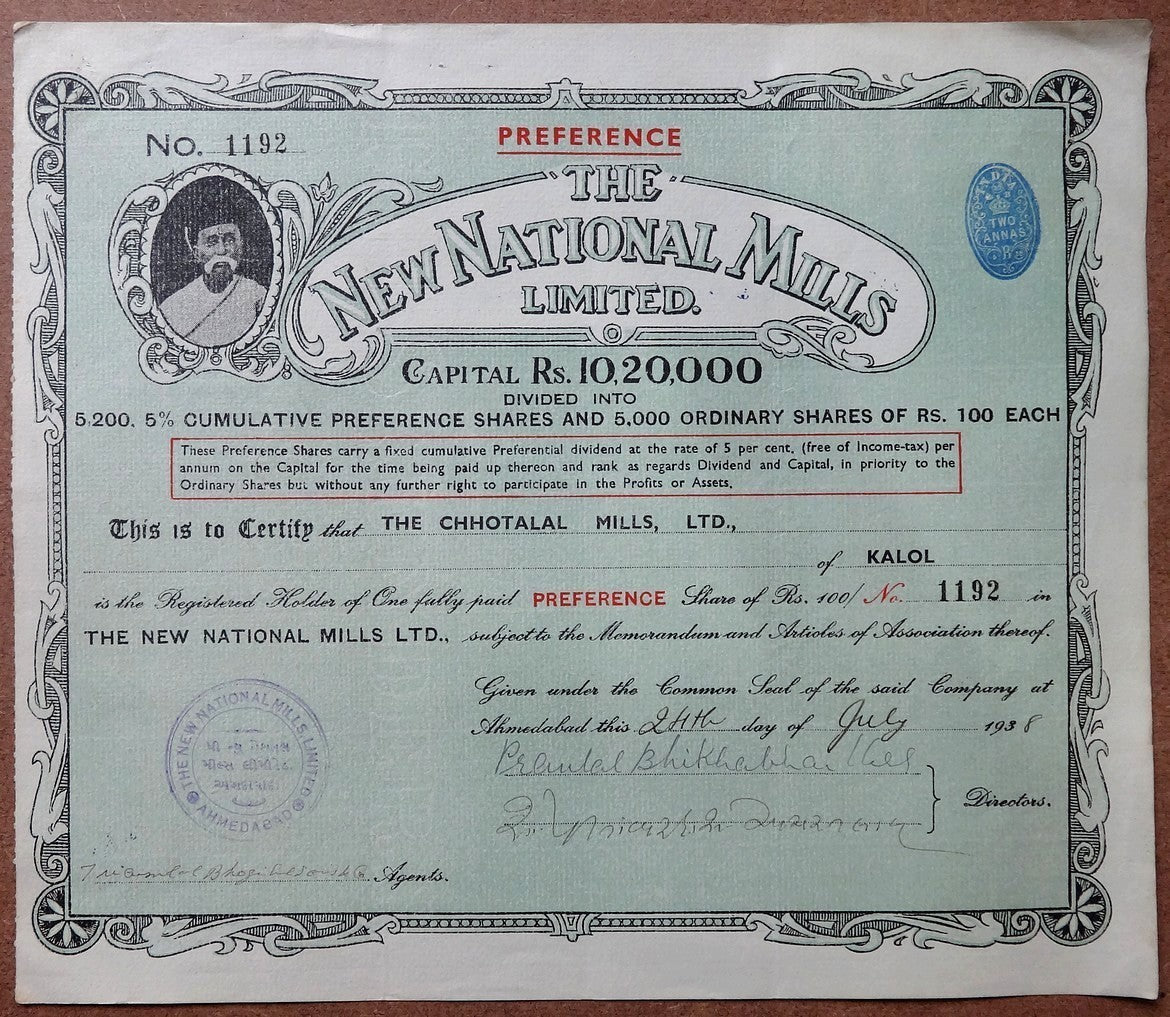 No. 1192
PREFERENCE
THE
NEW NATIONAL MILLS
LIMITED.
INDIA
TWO
ANNAS
CAPITAL RS. 10,20,000
DIVIDED INTO
5,200, 5% CUMULATIVE PREFERENCE SHARES AND 5,000 ORDINARY SHARES OF RS. 100 EACH
These Preference Shares carry a fixed cumulative Preferential dividend at the rate of 5 per cent, (free of Income-tax) per
annum on the Capital for the time being paid up thereon and rank as regards Dividend and Capital, in priority to the
Ordinary Shares but without any further right to participate in the Profits or Assets.
This is to Certify that THE CHHOTALAL MILLS, LTD.,
of KALOL
is the Registered Holder of One fully paid PREFERENCE Share of Rs. 100/ No. 1192 in
THE NEW NATIONAL MILLS LTD., subject to the Memorandum and Articles of Association thereof.
Given under the Common Seal of the said Company at
Ahmedabad this 24th day of July 1938
THE NEW NATIONAL MILLS LIMITED
AHMEDABAD
Directors.
Agents.